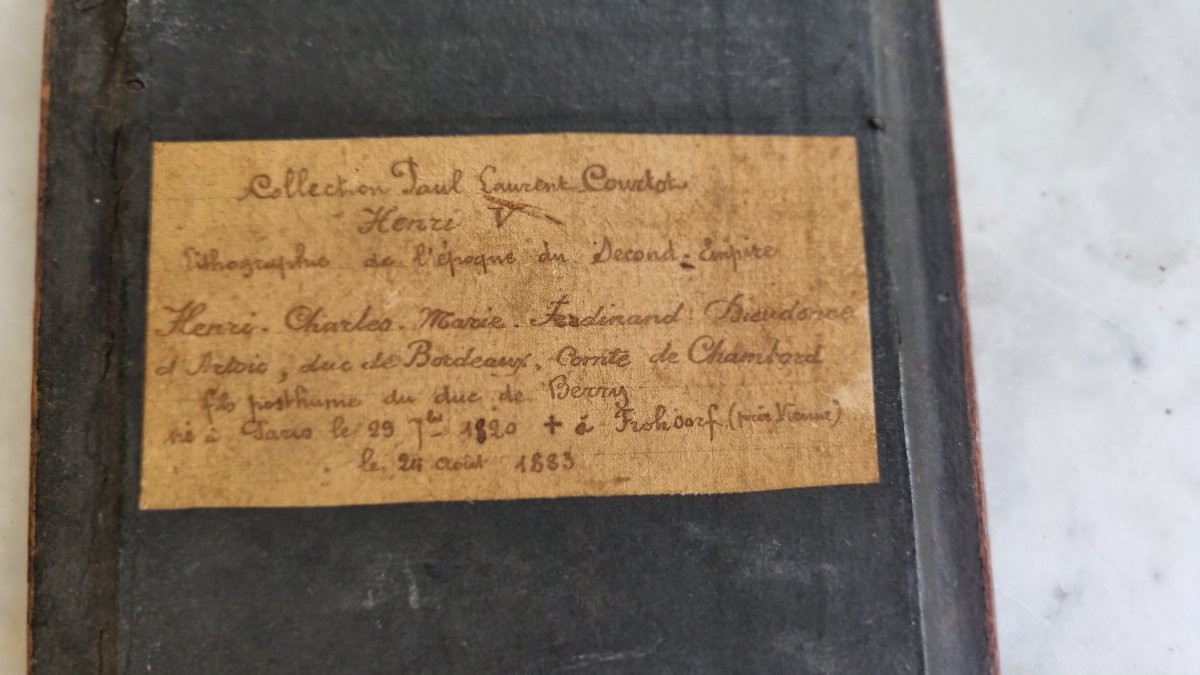 Collection Paul Laurent Courtot
Henri V
Lithographie de l'époque du Second-Empire
Henri. Charles. Marie. Ferdinand. Dieudonné
d'Artois, duc de Bordeaux, Comte de Chambord
fils posthume du duc de Berry
né à Paris le 29 7bre 1820 + à Frohsdorf (près Vienne)
le 24 août 1883